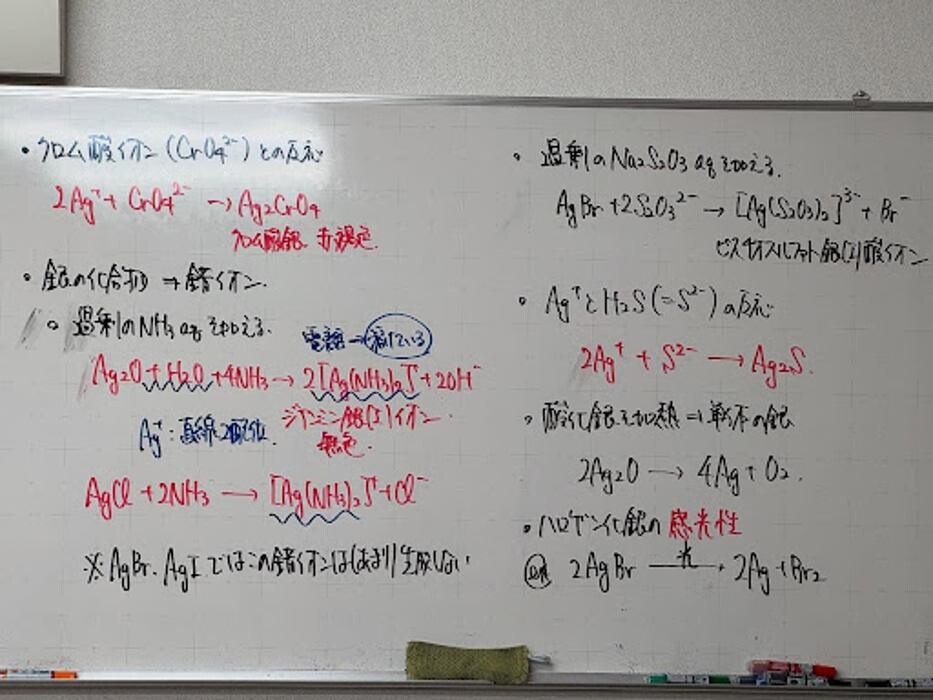 ・クロム酸イオン(CrO₄²⁻)との反応
2Ag⁺ + CrO₄²⁻ → Ag₂CrO₄
クロム酸銀 赤褐色.
・銀の化合物 → 錯イオン.
○ 過剰のNH₃aqを加える.
Ag₂O + H₂O + 4NH₃ → 2[Ag(NH₃)₂]⁺ + 2OH⁻
Ag⁺: 直線2配位. ジアンミン銀(I)イオン.
無色.
AgCl + 2NH₃ → [Ag(NH₃)₂]⁺ + Cl⁻
※ AgBr. AgI ではこの錯イオンは(あまり)生成しない
。過剰のNa₂S₂O₃aqを加える.
AgBr + 2S₂O₃²⁻ → [Ag(S₂O₃)₂]³⁻ + Br⁻
ビスチオスルファト銀(I)酸イオン
。Ag⁺とH₂S(=S²⁻)の反応
2Ag⁺ + S²⁻ → Ag₂S.
。酸化銀を加熱 → 単体の銀
2Ag₂O → 4Ag + O₂.
・ハロゲン化銀の感光性
2AgBr 光→ 2Ag + Br₂